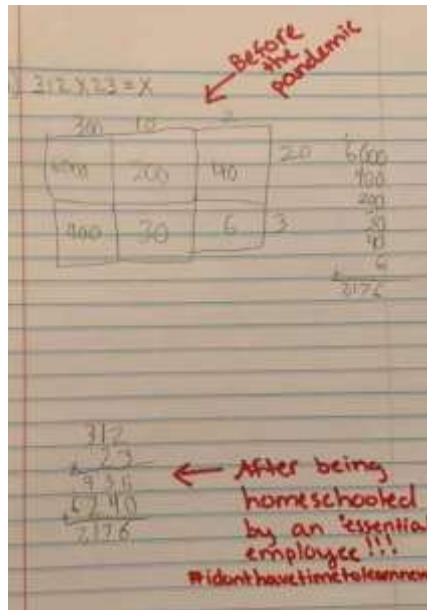 Before
the
pandemic
312 X 23 = X
300 10 2
6000 200 40 20
900 30 6 3
6000
900
200
30
40
6
7176
312
23
936
6240
7176
After being
homeschooled
by an "essential
employee!!!
#idonthavetimetolearnnew